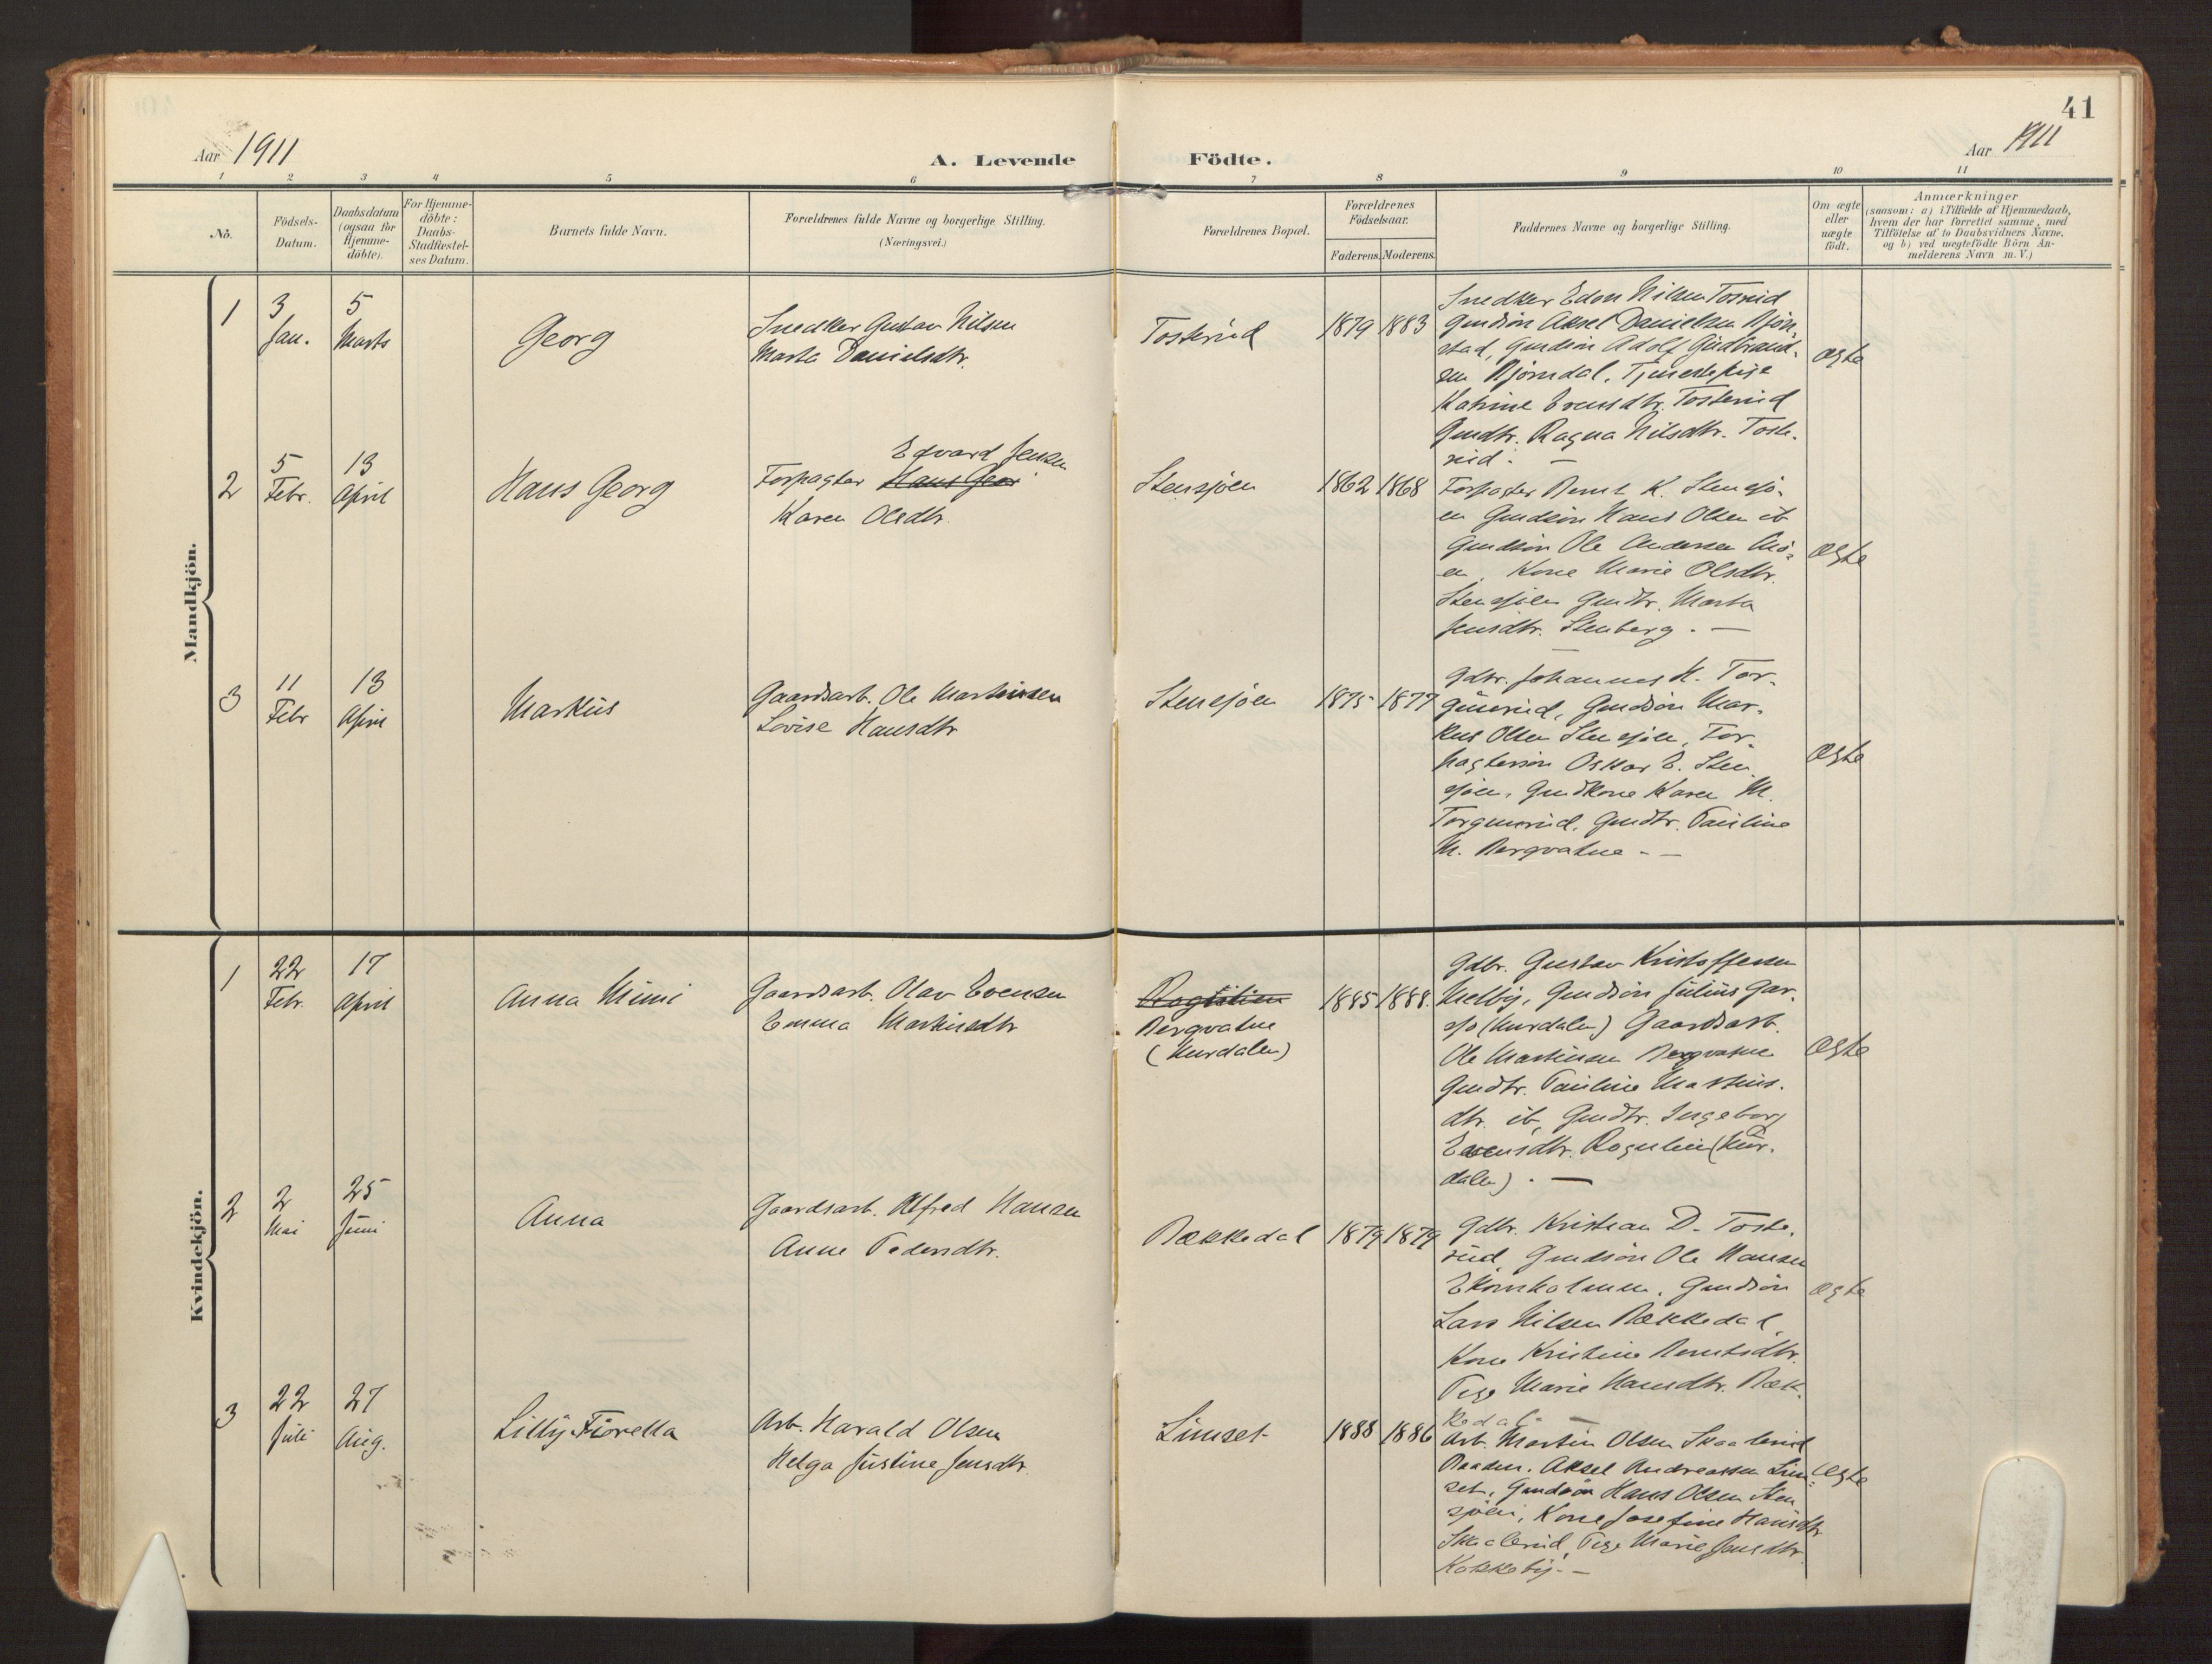 41
Aar 1911
A. Levende Födte.
Aar 1911
1 2 3 4 5 6 7 8 9 10 11
No.
Födsels-
Datum.
Daabsdatum
(ogsaa for
Hjemme-
döbte).
For Hjemme-
döbte:
Daabs-
Stadfæstel-
ses Datum.
Barnets fulde Navn.
Forældrenes fulde Navne og borgerlige Stilling.
(Næringsvei.)
Forældrenes Bopæl.
Forældrenes
Födselsaar.
Faderens. Moderens.
Faddernes Navne og borgerlige Stilling.
Om ægte
eller
uægte
födt.
Anmærkninger
(saasom: a) i Tilfælde af Hjemmedaab,
hvem der har forrettet samme, med
Tilföielse af to Daabsvidners Navne,
og b) ved uægtefödte Börn An-
melderens Navn m. V.)
Mandkjön.
1
3
Jan.
5
Marts
Georg
Snedker Gustav Nilsen
Marta Danielsdtr.
Tosterud
1879 1883
Snedker Edon Nilsen Tosrud
Gmdsön Aksel Danielsen Bjön-
stad, Gmdsön Adolf Gudbrand-
sen Björndal, Tjenestepige
Katrine Evensdtr. Tosterud
Gmdtr. Ragna Nilsdtr. Toste-
rud. —
ægte
2
5
Febr.
13
April
Hans Georg
Edvard Jensen
Forpagter Hans Geor
Karen Olsdtr.
Stensjöen
1862 1868
Forpagter Bernt K. Stensjö-
en Gmdsön Hans Olsen ib
Gmdsön Ole Andersen Mo-
en, Kone Marie Olsdtr.
Stensjöen Gmdtr. Marta
Jensdtr. Stenberg. —
ægte
3
11
Febr
13
April
Markus
Gaardsarb. Ole Martinsen
Lovise Hansdtr
Stensjöen
1875 1877
Gdbr. Johannes H. Tor-
gunrud, Gmdsön Mar-
kus Olsen Stensjöen, For-
pagtersön Oskar E. Sten
sjöen, Gmdkone Karen M.
Torgunrud, Gmdtr. Pauline
M. Bergvatne - —
ægte
Kvindekjön.
1
22
Febr.
17
April
Anna Mimi
Gaardsarb. Olav Evensen
Emma Martinsdtr
Rognlien
Bergvatne
(Hurdalen)
1885 1888.
Gdbr. Gustav Kristoffersen
Melby, Gmdsön Julius Gar-
sjö (Hurdalen) Gaardsarb.
Ole Martinsen Bergvatne
Gmdtr. Pauline Martins-
dtr. ib, Gmdtr. Ingeborg
Evensdtr. Rognlien (Hur-
dalen). —
ægte
2
2
Mai
25
Juni
Anna
Gaardsarb. Alfred Hansen
Anne Pedersdtr.
Bækkedal
1879 1879
Gdbr. Kristian D. Toste-
rud, Gmdsön Ole Hansen
Ekornholmen, Gmdsön
Lars Nilsen Bækkedal,
Kone Kristine Berntsdtr.
Pige Marie Hansdtr. Bæk-
kedal. —
ægte
3
22
Juli
27
Aug.
Lilly Fiorella
Arb. Harald Olsen
Helga Justine Jensdtr.
Linset
1888 1886
Arb. Martin Olsen Skaalerud
Aksel Andreassen Lin-
set, Gmdsön Hans Olsen Sten
sjöen, Kone Josefine Hansdtr
Skaalerud, Pige Marie Jensdtr.
Kokkeby. —
ægte